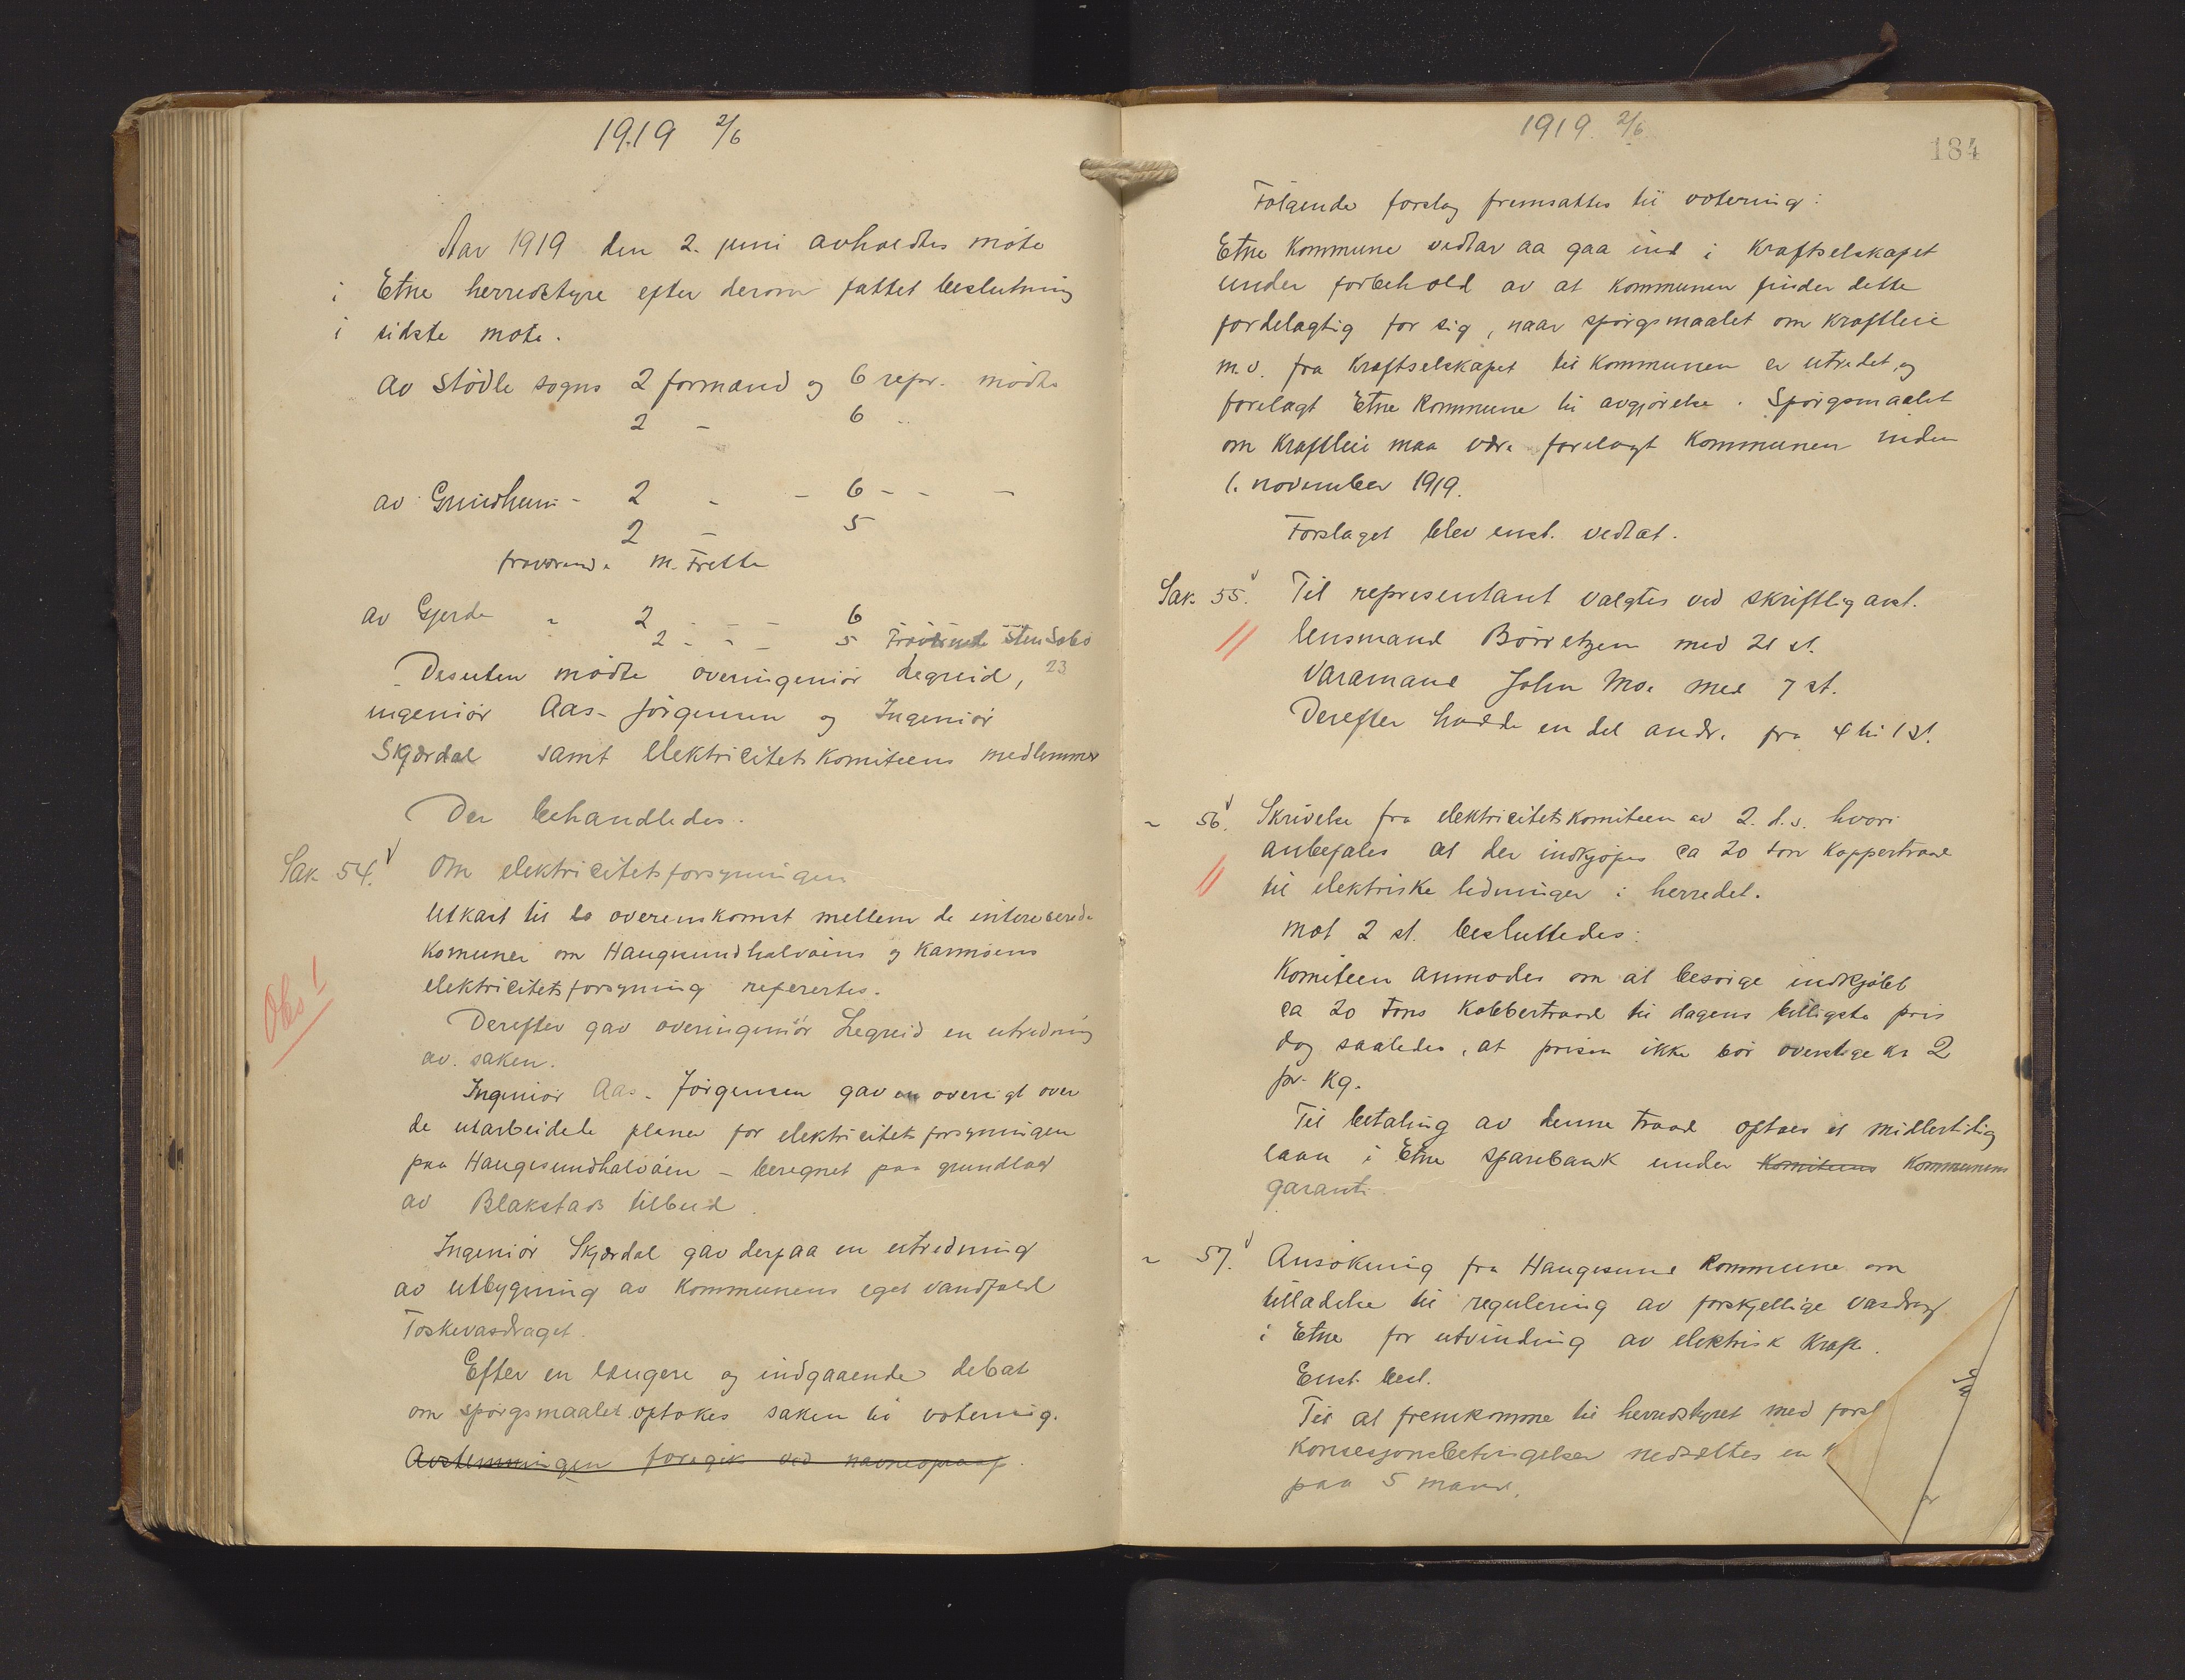 1919 2/6
Aar 1919 den 2. juni avholdtes møte
i Etne herredstyre efter derom fattet beslutning
i sidste møte.
Av Stødle sogns 2 formænd og 6 repr. mødte
2 - 6
av Grindheim - 2 - - 6 - - -
2 - 5
fraværende M. Frette
av Gjerde - 2 - - - 6
2 - - - 5 Fraværende
Desuten mødte overingeniør Legreid, 23
ingeniør Aas-Jørgensen og Ingeniør
Skjærdal samt Elektricitetskomiteens medlemmer
Der behandledes.
Sak 54. Om elektricitetsforsyningen
Utkast til overenskomst mellem de interesserede
Komuner om Haugesundhalvøens og Karmøens
elektricitetsforsyning referertes.
Obs!
Derefter gav overingeniør Legreid en utredning
av saken.
Ingeniør Aas-Jørgensen gav en oversigt over
de utarbeidede planer for elektricitetsforsyningen
paa Haugesundhalvøen - beregnet paa grundlag
av Blakstads tilbud.
Ingeniør Skjærdal gav derpaa en utredning
av utbygning av Kommunens eget vandfald
Toskevasdraget.
Efter en længere og indgaaende debat
om spørgsmaalet optokes saken til votering.
Avstemningen foregik ved navneopraap.
1919 2/6
184
Følgende forslag fremsattes til votering:
Etne Kommune vedtar aa gaa ind i Kraftselskapet
under forbehold av at kommunen finder dette
fordelagtig for sig, naar spørgsmaalet om kraftleie
m.v. fra Kraftselskapet til Kommunen er utredet, og
forelagt Etne Kommune til avgjørelse. Spørgsmaalet
om Kraftleie maa være forelagt Kommunen inden
1. november 1919.
Forslaget blev enst. vedtat.
Sak 55. Til representant valgtes ved skriftlig avst.
lensmand Børretzen med 21 st.
Varamand John Moe med 7 st.
Derefter hadde en del andre fra 4 til 1 st.
" 56. Skrivelse fra elektricitetskomiteen av 2. d.s. hvori
anbefales at der indkjøpes ca 20 ton Koppertraad
til elektriske ledninger i herredet.
Mot 2 st. besluttedes:
Komiteen anmodes om at besørge indkjøbt
ca 20 tons Kobbertraad til dagens billigste pris
dog saaledes, at prisen ikke bør overstige kr 2
pr. Kg.
Til betaling av denne traad optaes et midlertidig
laan i Etne sparebank under Komiteens Kommunens
garanti.
" 57. Ansøkning fra Haugesund Kommune om
tilladelse til regulering av forskjellige vasdrag
i Etne for utvinding av elektrisk Kraft.
Enst. besl.
Til at fremkomme til herredstyret med forsl
Konsesjonsbetingelser nedsættes en K
paa 5 mand.